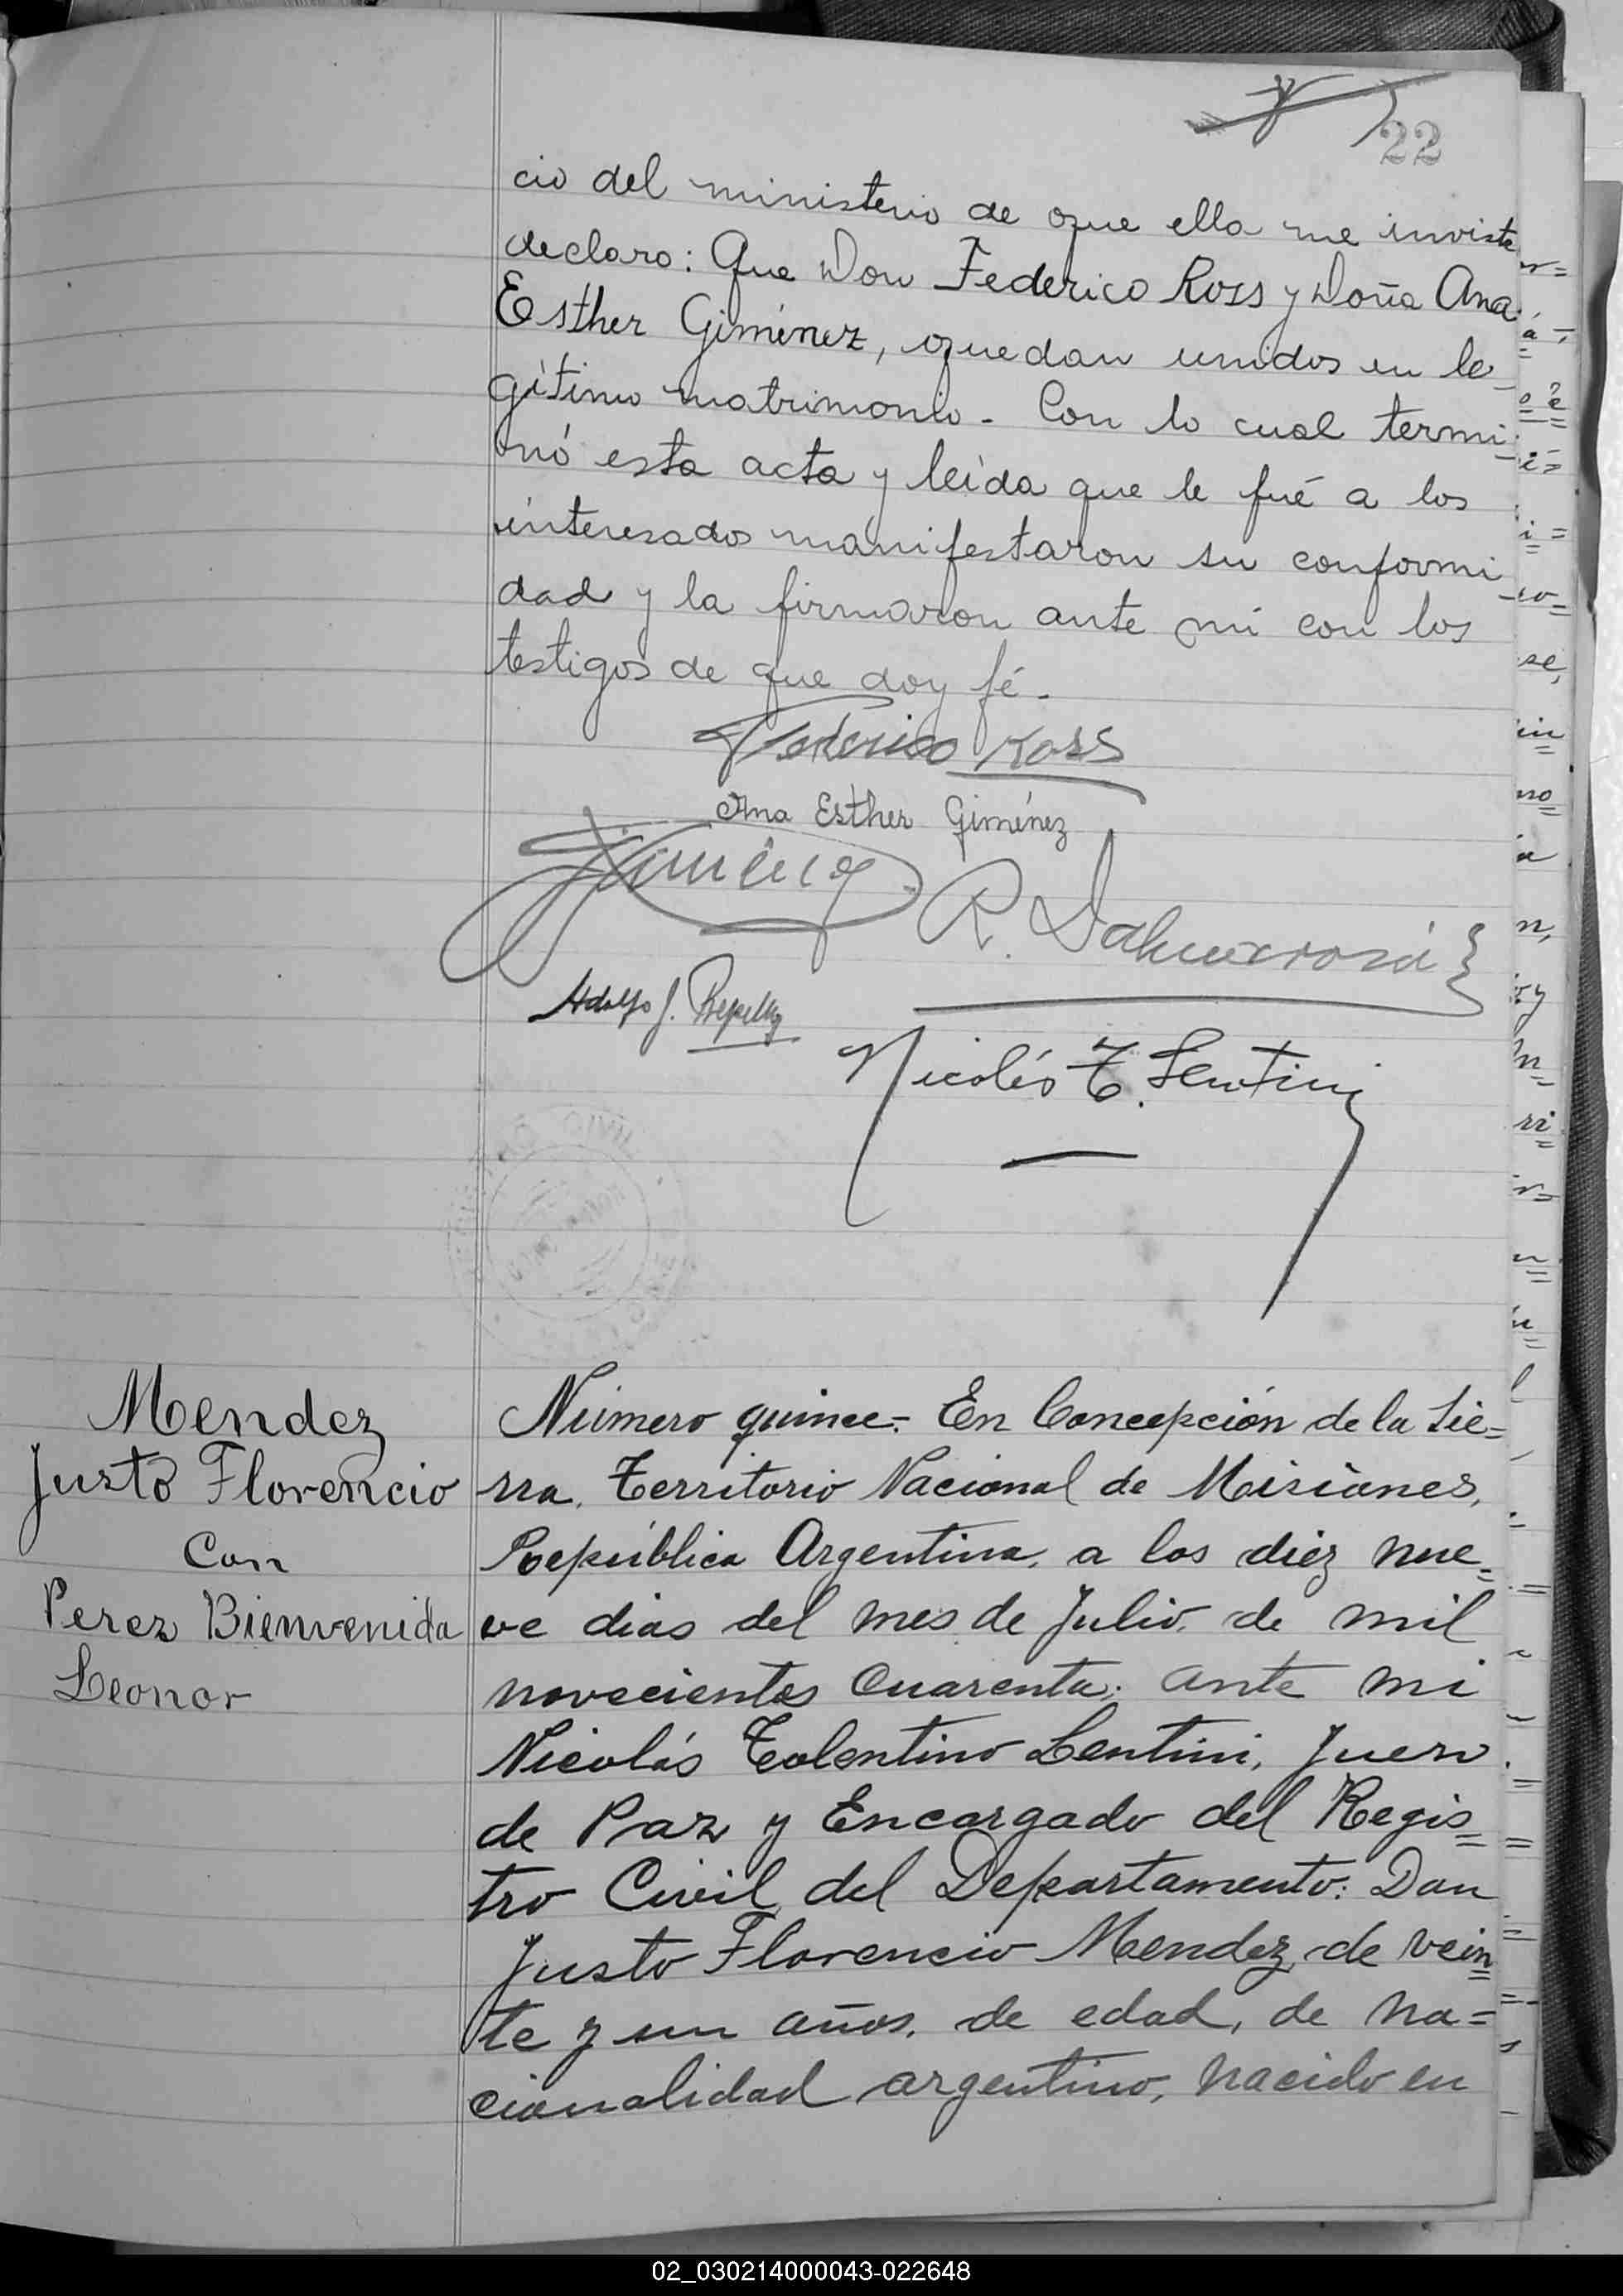 22
cio del ministerio de que ella me inviste
declaro: Que Don Federico Ross y Doña Ana
Esther Giménez, quedan unidos en le-
gítimo matrimonio - Con lo cual termi-
nó esta acta y leída que le fué a los
interesados manifestaron su conformi-
dad y la firmaron ante mi con los
testigos de que doy fé.
Federico Ross
Ana Esther Giménez
R.
Adolfo J.
Nicolás T. Lentini
CIVIL
Mendez
Justo Florencio
Con
Perez Bienvenida
Leonor
Número quince.= En Concepción de la Sie=
rra, Territorio Nacional de Misiones,
República Argentina, a los diez nue=
ve dias del mes de Julio, de mil
novecientos cuarenta; ante mi
Nicolás Tolentino Lentini, Juez
de Paz y Encargado del Regis=
tro Civil del Departamento: Don
Justo Florencio Mendez, de vein=
te y un años, de edad, de na=
cionalidad argentino, nacido en
02_030214000043-022648